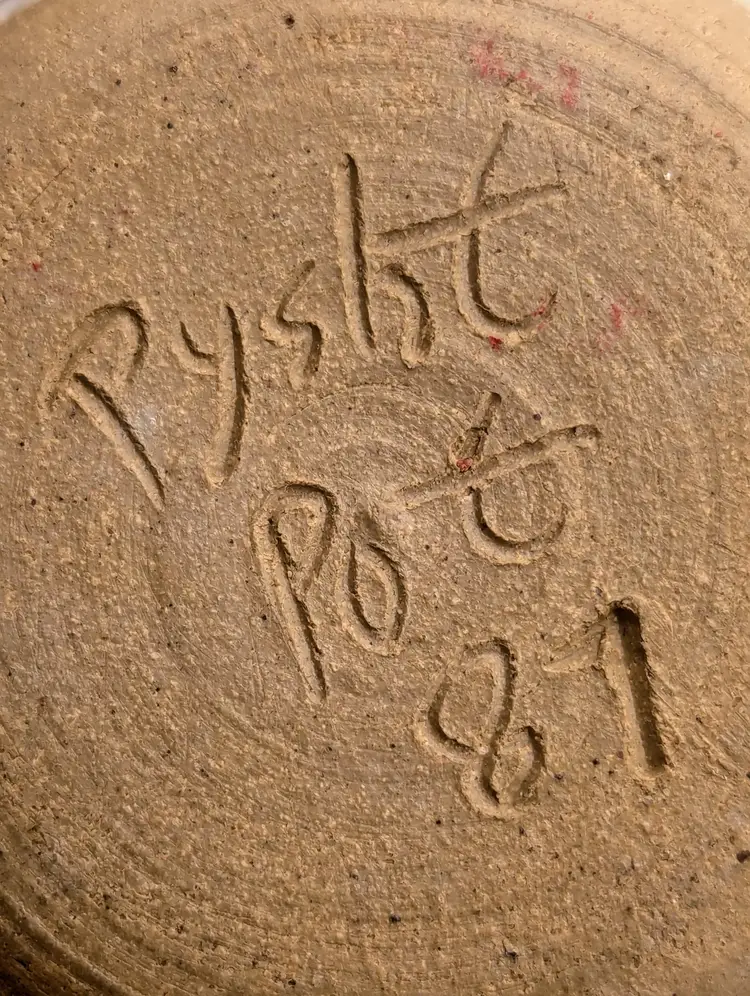 Pysht
Pot
81